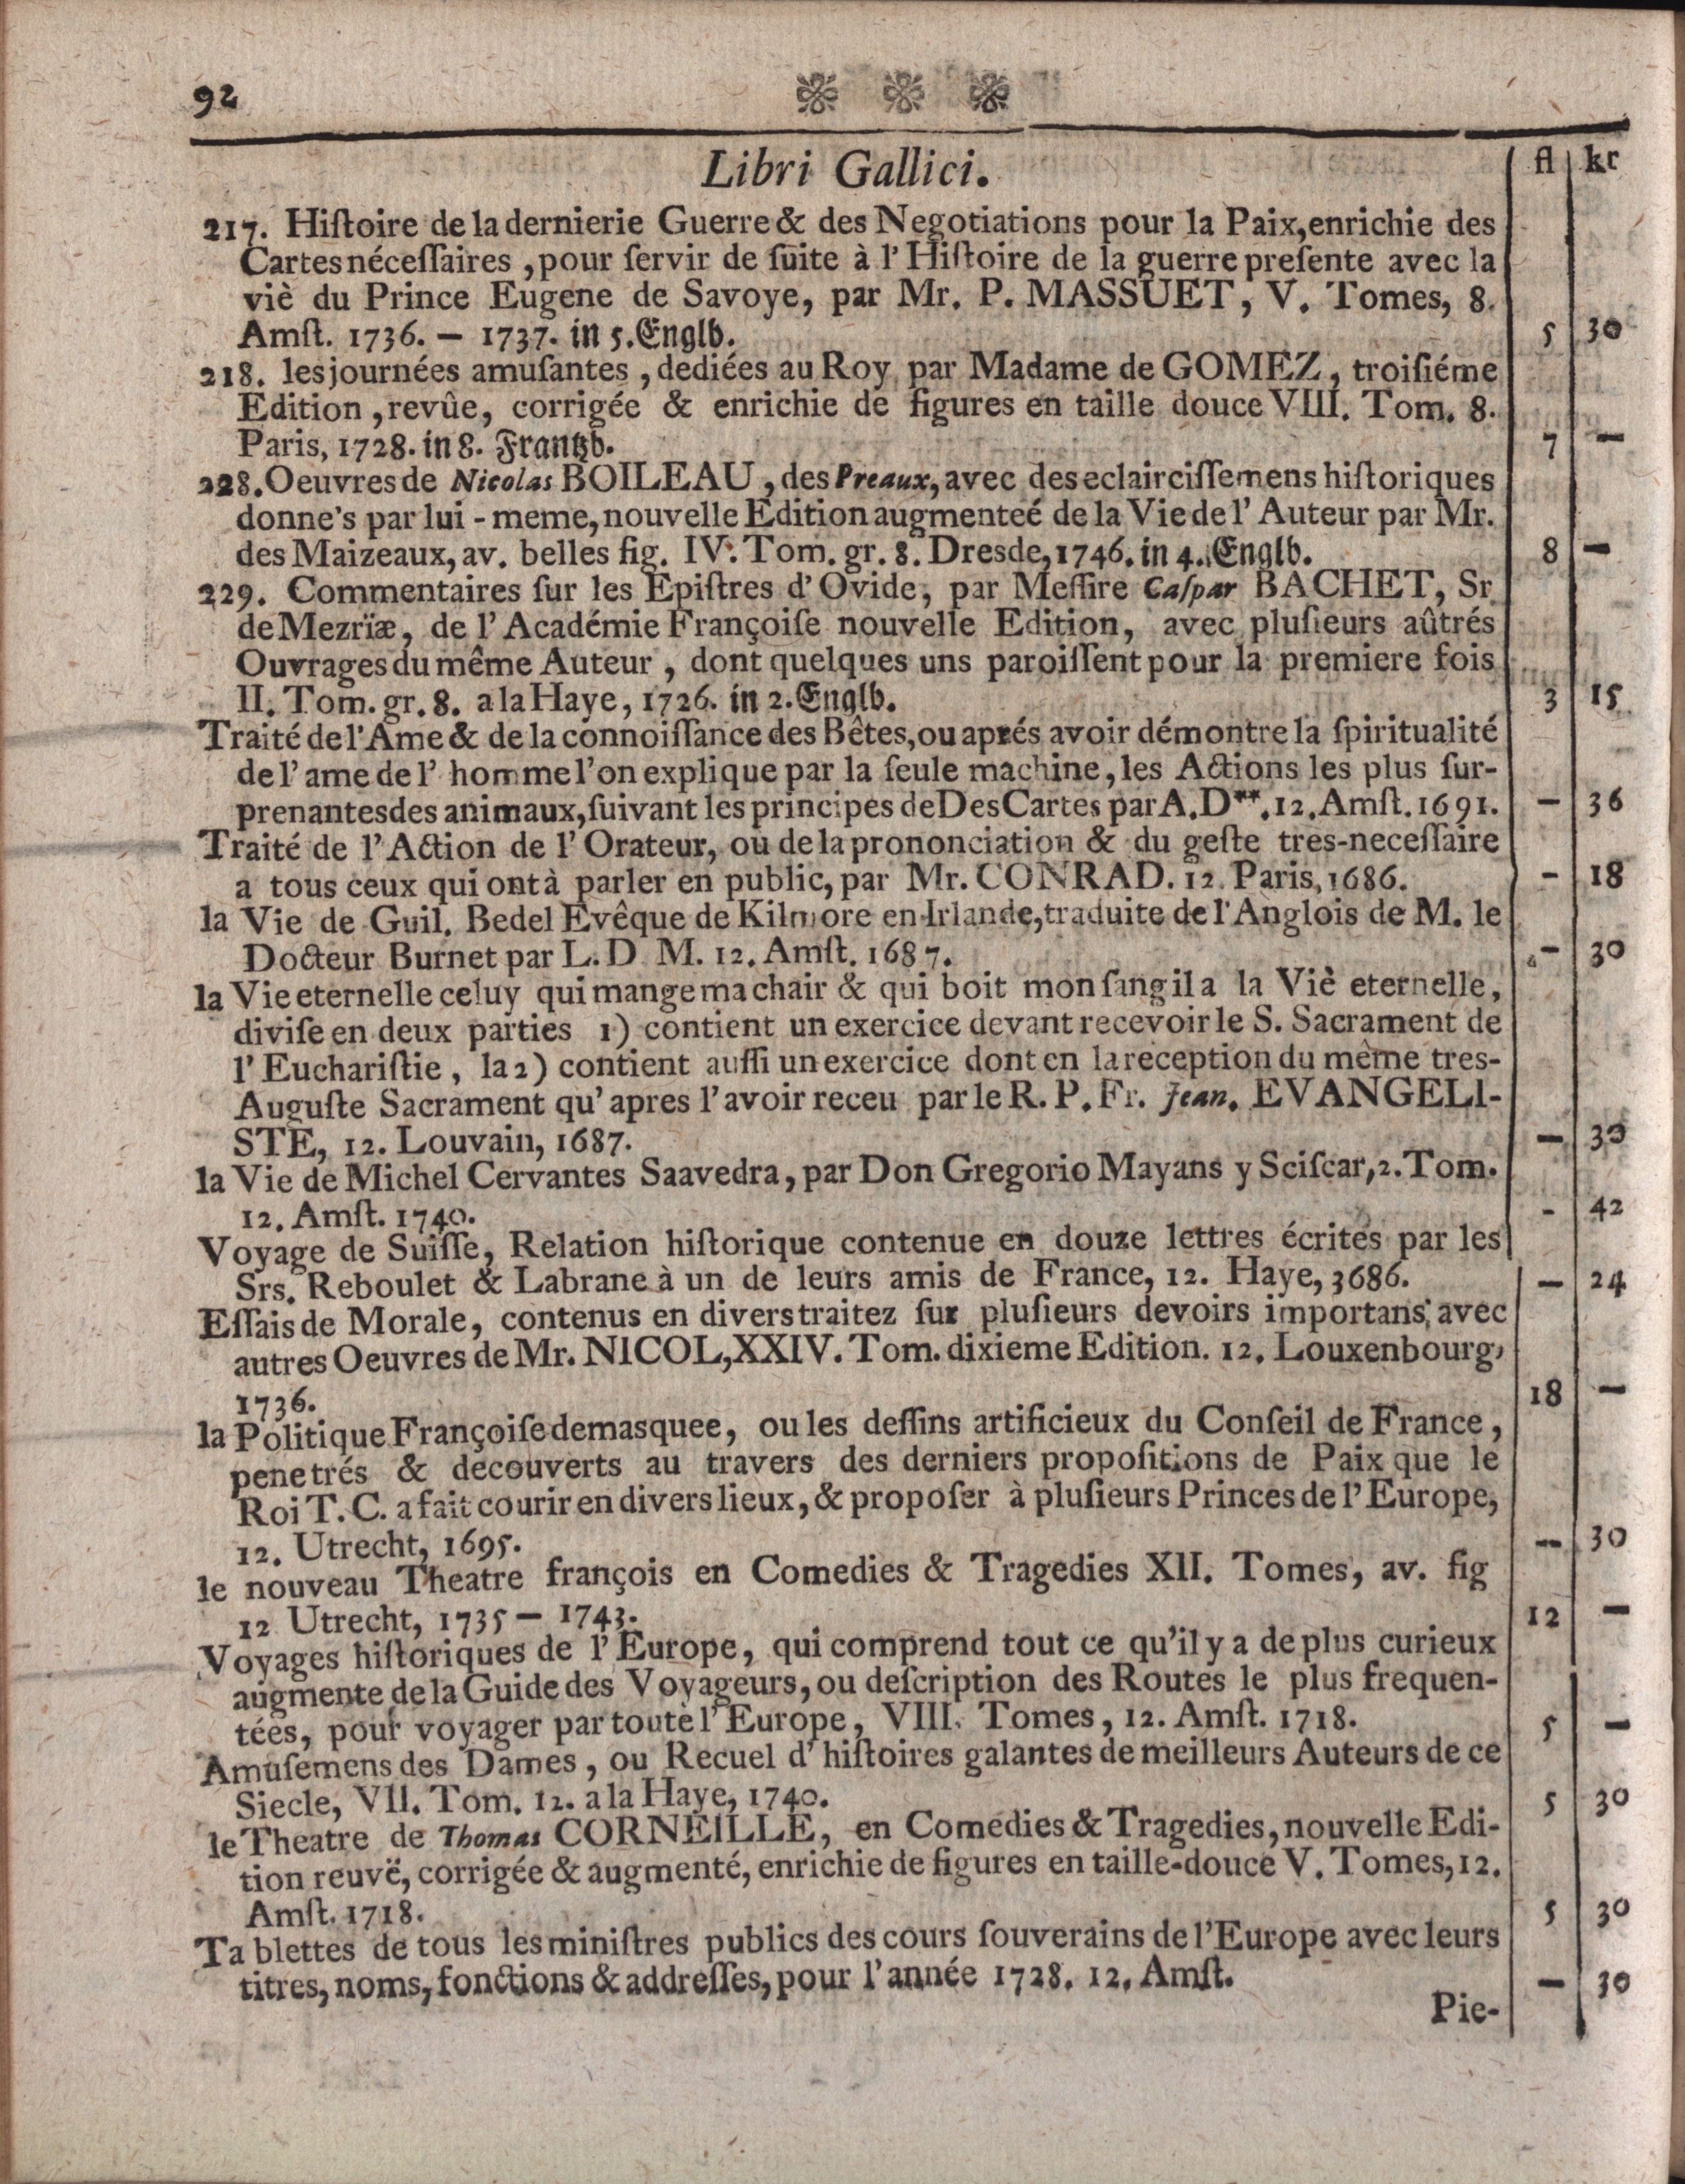 92
Libri Gallici.
fl kr
217. Hiſtoire de la dernierie Guerre & des Negotiations pour la Paix, enrichie des
Cartes néceſſaires, pour ſervir de ſuite à l' Hiſtoire de la guerre preſente avec la
viè du Prince Eugene de Savoye, par Mr. P. MASSUET, V. Tomes, 8.
Amſt. 1736. — 1737. in 5. Englb. 5 30
218. les journées amuſantes, dediées au Roy par Madame de GOMEZ, troiſiéme
Edition, revûe, corrigée & enrichie de figures en taille douce VIII. Tom. 8.
Paris, 1728. in 8. Frantzb. 7 —
228. Oeuvres de Nicolas BOILEAU, des Preaux, avec des eclairciſſemens hiſtoriques
donne's par lui - meme, nouvelle Edition augmenteé de la Vie de l' Auteur par Mr.
des Maizeaux, av. belles fig. IV. Tom. gr. 8. Dresde, 1746. in 4. Englb. 8 —
229. Commentaires ſur les Epiſtres d' Ovide, par Meſſire Caſpar BACHET, Sr
de Mezrïæ, de l' Académie Françoiſe nouvelle Edition, avec pluſieurs aûtrés
Ouvrages du même Auteur, dont quelques uns paroiſſent pour la premiere fois
II. Tom. gr. 8. a la Haye, 1726. in 2. Englb. 3 15
Traité de l'Ame & de la connoiſſance des Bêtes, ou aprés avoir démontre la ſpiritualité
de l' ame de l' homme l'on explique par la ſeule machine, les Actions les plus ſur-
prenantes des animaux, ſuivant les principes de Des Cartes par A. D**. 12. Amſt. 1691. — 36
Traité de l'Action de l' Orateur, ou de la prononciation & du geſte tres-neceſſaire
a tous ceux qui ont à parler en public, par Mr. CONRAD. 12. Paris, 1686. - 18
la Vie de Guil. Bedel Evêque de Kilmore en Irlande, traduite de l'Anglois de M. le
Docteur Burnet par L. D M. 12. Amſt. 1687. - 30
la Vie eternelle celuy qui mange ma chair & qui boit mon ſang il a la Viè eternelle,
diviſe en deux parties 1) contient un exercice devant recevoir le S. Sacrament de
l' Euchariſtie, la 2) contient auſſi un exercice dont en la reception du même tres-
Auguſte Sacrament qu' apres l'avoir receu par le R. P. Fr. Jean. EVANGELI-
STE, 12. Louvain, 1687. — 30
la Vie de Michel Cervantes Saavedra, par Don Gregorio Mayans y Sciſcar, 2. Tom.
12. Amſt. 1740. - 42
Voyage de Suiſſe, Relation hiſtorique contenue en douze lettres écrités par les
Srs. Reboulet & Labrane à un de leurs amis de France, 12. Haye, 3686. — 24
Eſſais de Morale, contenus en divers traitez ſur pluſieurs devoirs importans, avec
autres Oeuvres de Mr. NICOL, XXIV. Tom. dixieme Edition. 12. Louxenbourg,
1736. 18 —
la Politique Françoiſe demasquee, ou les deſſins artificieux du Conſeil de France,
penetrés & decouverts au travers des derniers propoſitions de Paix que le
Roi T. C. a fait courir en divers lieux, & propoſer à pluſieurs Princes de l' Europe,
12. Utrecht, 1695. — 30
le nouveau Theatre françois en Comedies & Tragedies XII. Tomes, av. fig
12 Utrecht, 1735 — 1743. 12 —
Voyages hiſtoriques de l' Europe, qui comprend tout ce qu'il y a de plus curieux
augmente de la Guide des Voyageurs, ou deſcription des Routes le plus frequen-
tées, pour voyager par toutè l' Europe, VIII. Tomes, 12. Amſt. 1718. 5 —
Amuſemens des Dames, ou Recuel d' hiſtoires galantes de meilleurs Auteurs de ce
Siecle, VII. Tom. 12. a la Haye, 1740. 5 30
le Theatre de Thomas CORNEILLE, en Comedies & Tragedies, nouvelle Edi-
tion reuvë, corrigée & augmenté, enrichie de figures en taille-douce V. Tomes, 12.
Amſt. 1718. 5 30
Ta blettes de tous les miniſtres publics des cours ſouverains de l'Europe avec leurs
titres, noms, fonctions & addreſſes, pour l'année 1728. 12. Amſt. — 30
Pie-